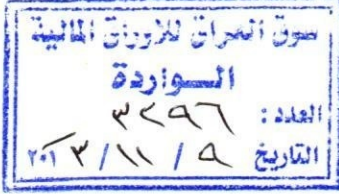 سوق العراق للاوراق المالية
الـــواردة
العدد : ٣٢٩٦
التاريخ ٩ / ١١ / ٢٠١٣